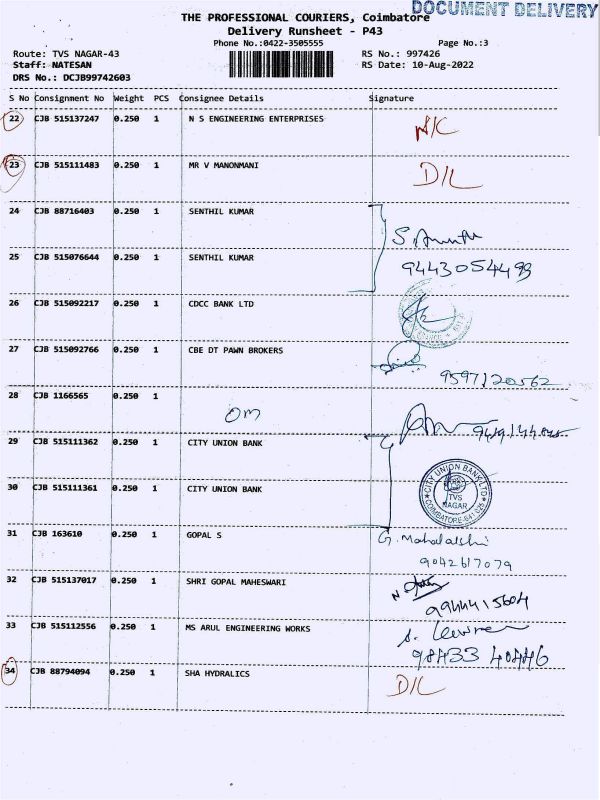 DOCUMENT DELIVERY
THE PROFESSIONAL COURIERS, Coimbatore
Delivery Runsheet - P43
Phone No.:0422-3505555 Page No.:3
Route: TVS NAGAR-43 RS No.: 997426
Staff: NATESAN RS Date: 10-Aug-2022
DRS No.: DCJB99742603
S No Consignment No Weight PCS Consignee Details Signature
22 CJB 515137247 0.250 1 N S ENGINEERING ENTERPRISES N/C
23 CJB 515111483 0.250 1 MR V MANONMANI D/L
24 CJB 88716403 0.250 1 SENTHIL KUMAR
25 CJB 515076644 0.250 1 SENTHIL KUMAR 9443054493
26 CJB 515092217 0.250 1 CDCC BANK LTD
27 CJB 515092766 0.250 1 CBE DT PAWN BROKERS 9597120562
28 CJB 1166565 0.250 1 OM
29 CJB 515111362 0.250 1 CITY UNION BANK
30 CJB 515111361 0.250 1 CITY UNION BANK
CITY UNION BANK LTD
TVS
NAGAR
COIMBATORE-641 025
31 CJB 163610 0.250 1 GOPAL S G. Mahalakshi
9042617079
32 CJB 515137017 0.250 1 SHRI GOPAL MAHESWARI
9944415604
33 CJB 515112556 0.250 1 MS ARUL ENGINEERING WORKS
98433 40446
34 CJB 88794094 0.250 1 SHA HYDRALICS D/L